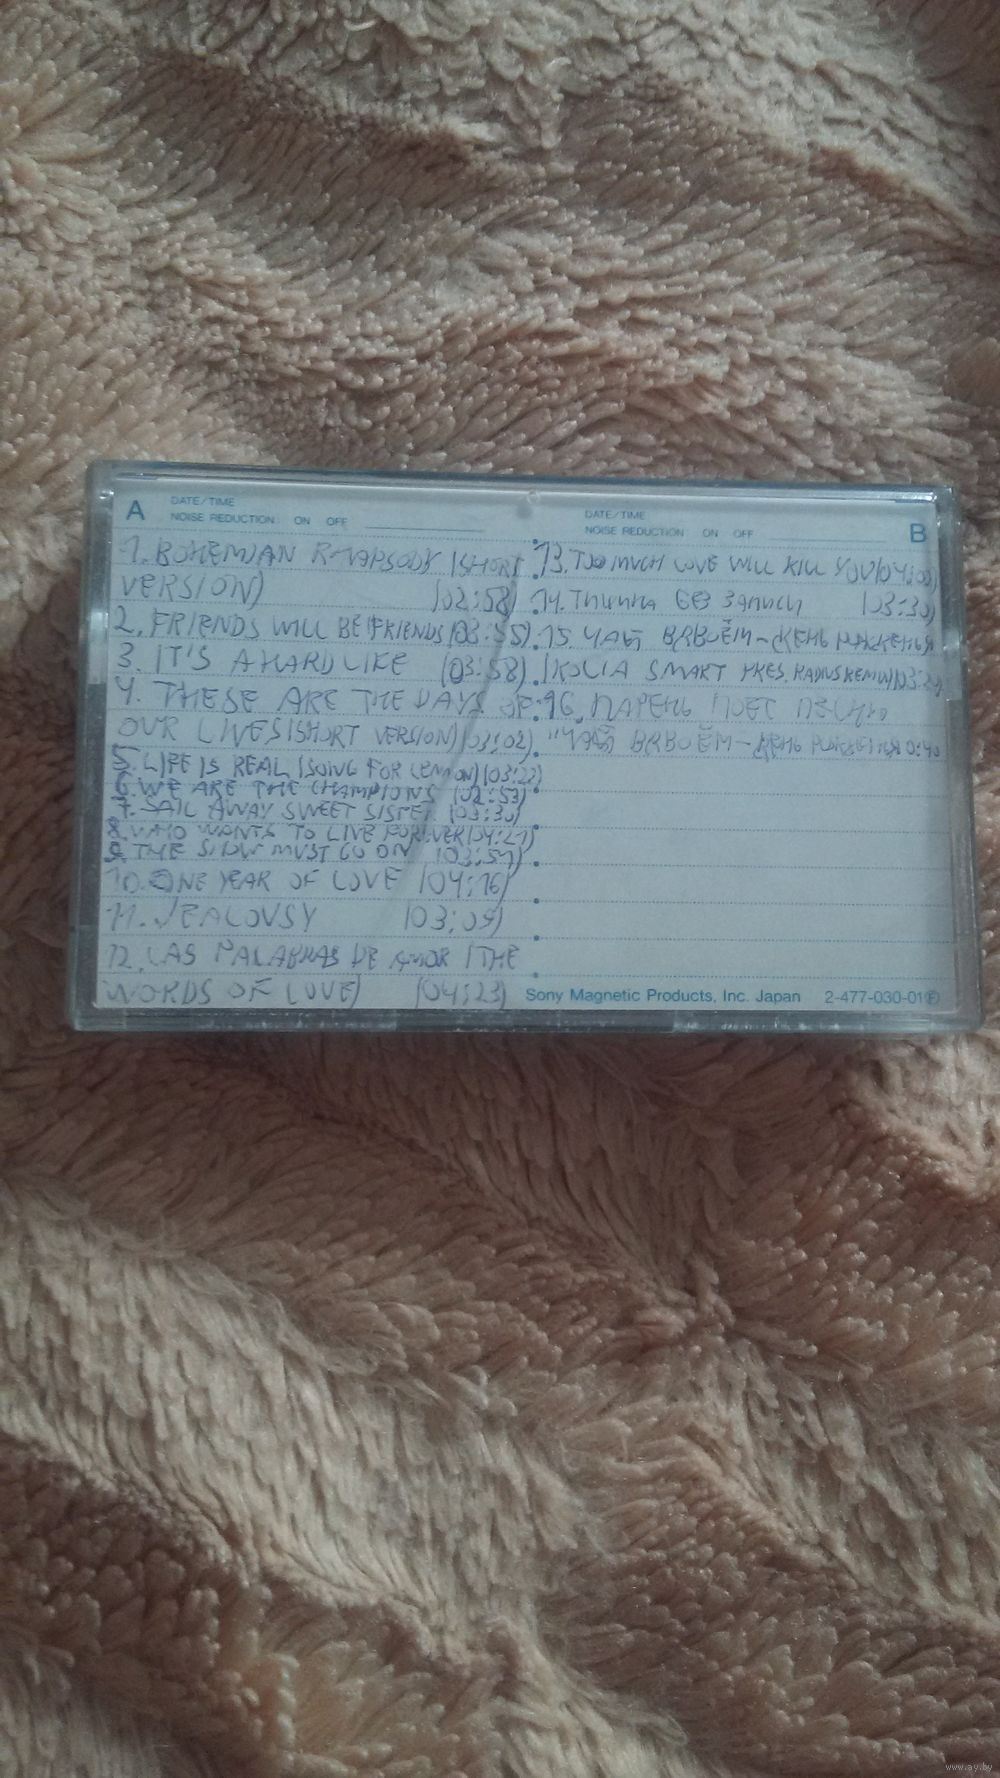 A DATE/TIME
NOISE REDUCTION ON OFF
1. BOHEMIAN RHAPSODY (SHORT
VERSION) (02:58)
2. FRIENDS WILL BE FRIENDS (03:55)
3. IT'S A HARD LIKE (03:58)
4. THESE ARE THE DAYS OF
OUR LIVES (SHORT VERSION) (03:02)
5. LIFE IS REAL (SONG FOR LENNON) (03:22)
6. WE ARE THE CHAMPIONS (02:53)
7. SAIL AWAY SWEET SISTER (03:30)
8. WHO WANTS TO LIVE FOREVER
9. THE SHOW MUST GO ON
10. ONE YEAR OF LOVE (04:16)
11. JEALOUSY (03:09)
12. LAS PALABRAS DE AMOR (THE
WORDS OF LOVE) (04:23)
DATE/TIME
NOISE REDUCTION ON OFF B
13. TOO MUCH LOVE WILL KILL YOU
14. Тишина без записи (03:30)
15. ЧАЙ ВДВОЁМ - ДЕНЬ РОЖДЕНЬЯ
(KOLIA SMART PRES.
16. ПАРЕНЬ ПОЁТ ПЕСНЮ
"ЧАЙ ВДВОЁМ - ДЕНЬ 0:40
Sony Magnetic Products, Inc. Japan 2-477-030-01
www.ay.by